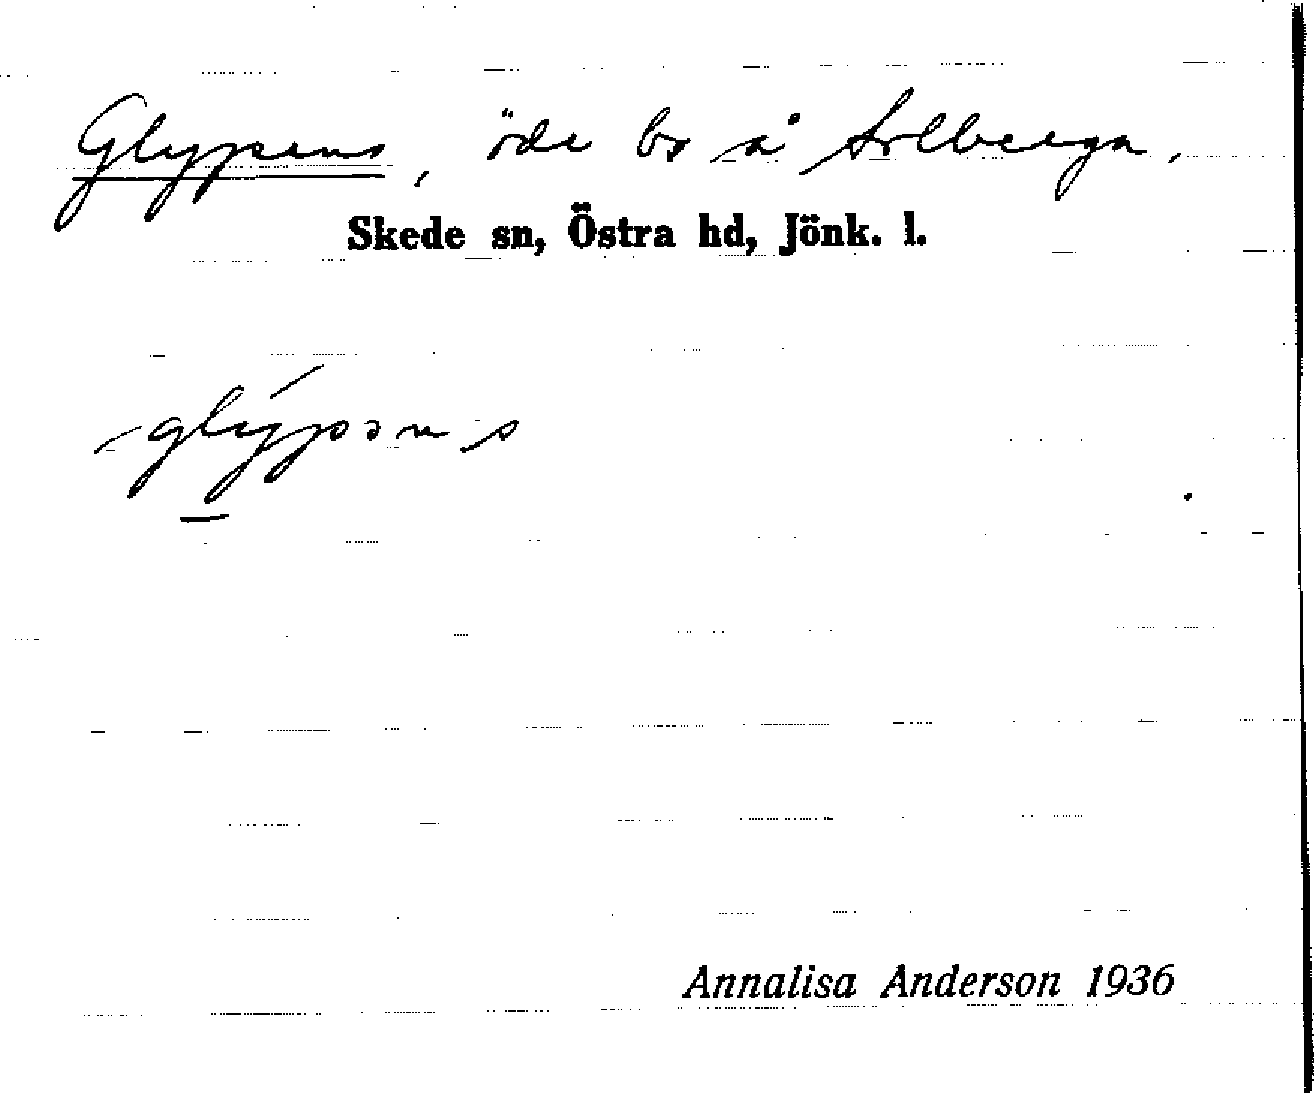 Glypens, öde bs å Solberga,
Skede sn, Östra hd, Jönk. l.
glýpəns
Annalisa Anderson 1936